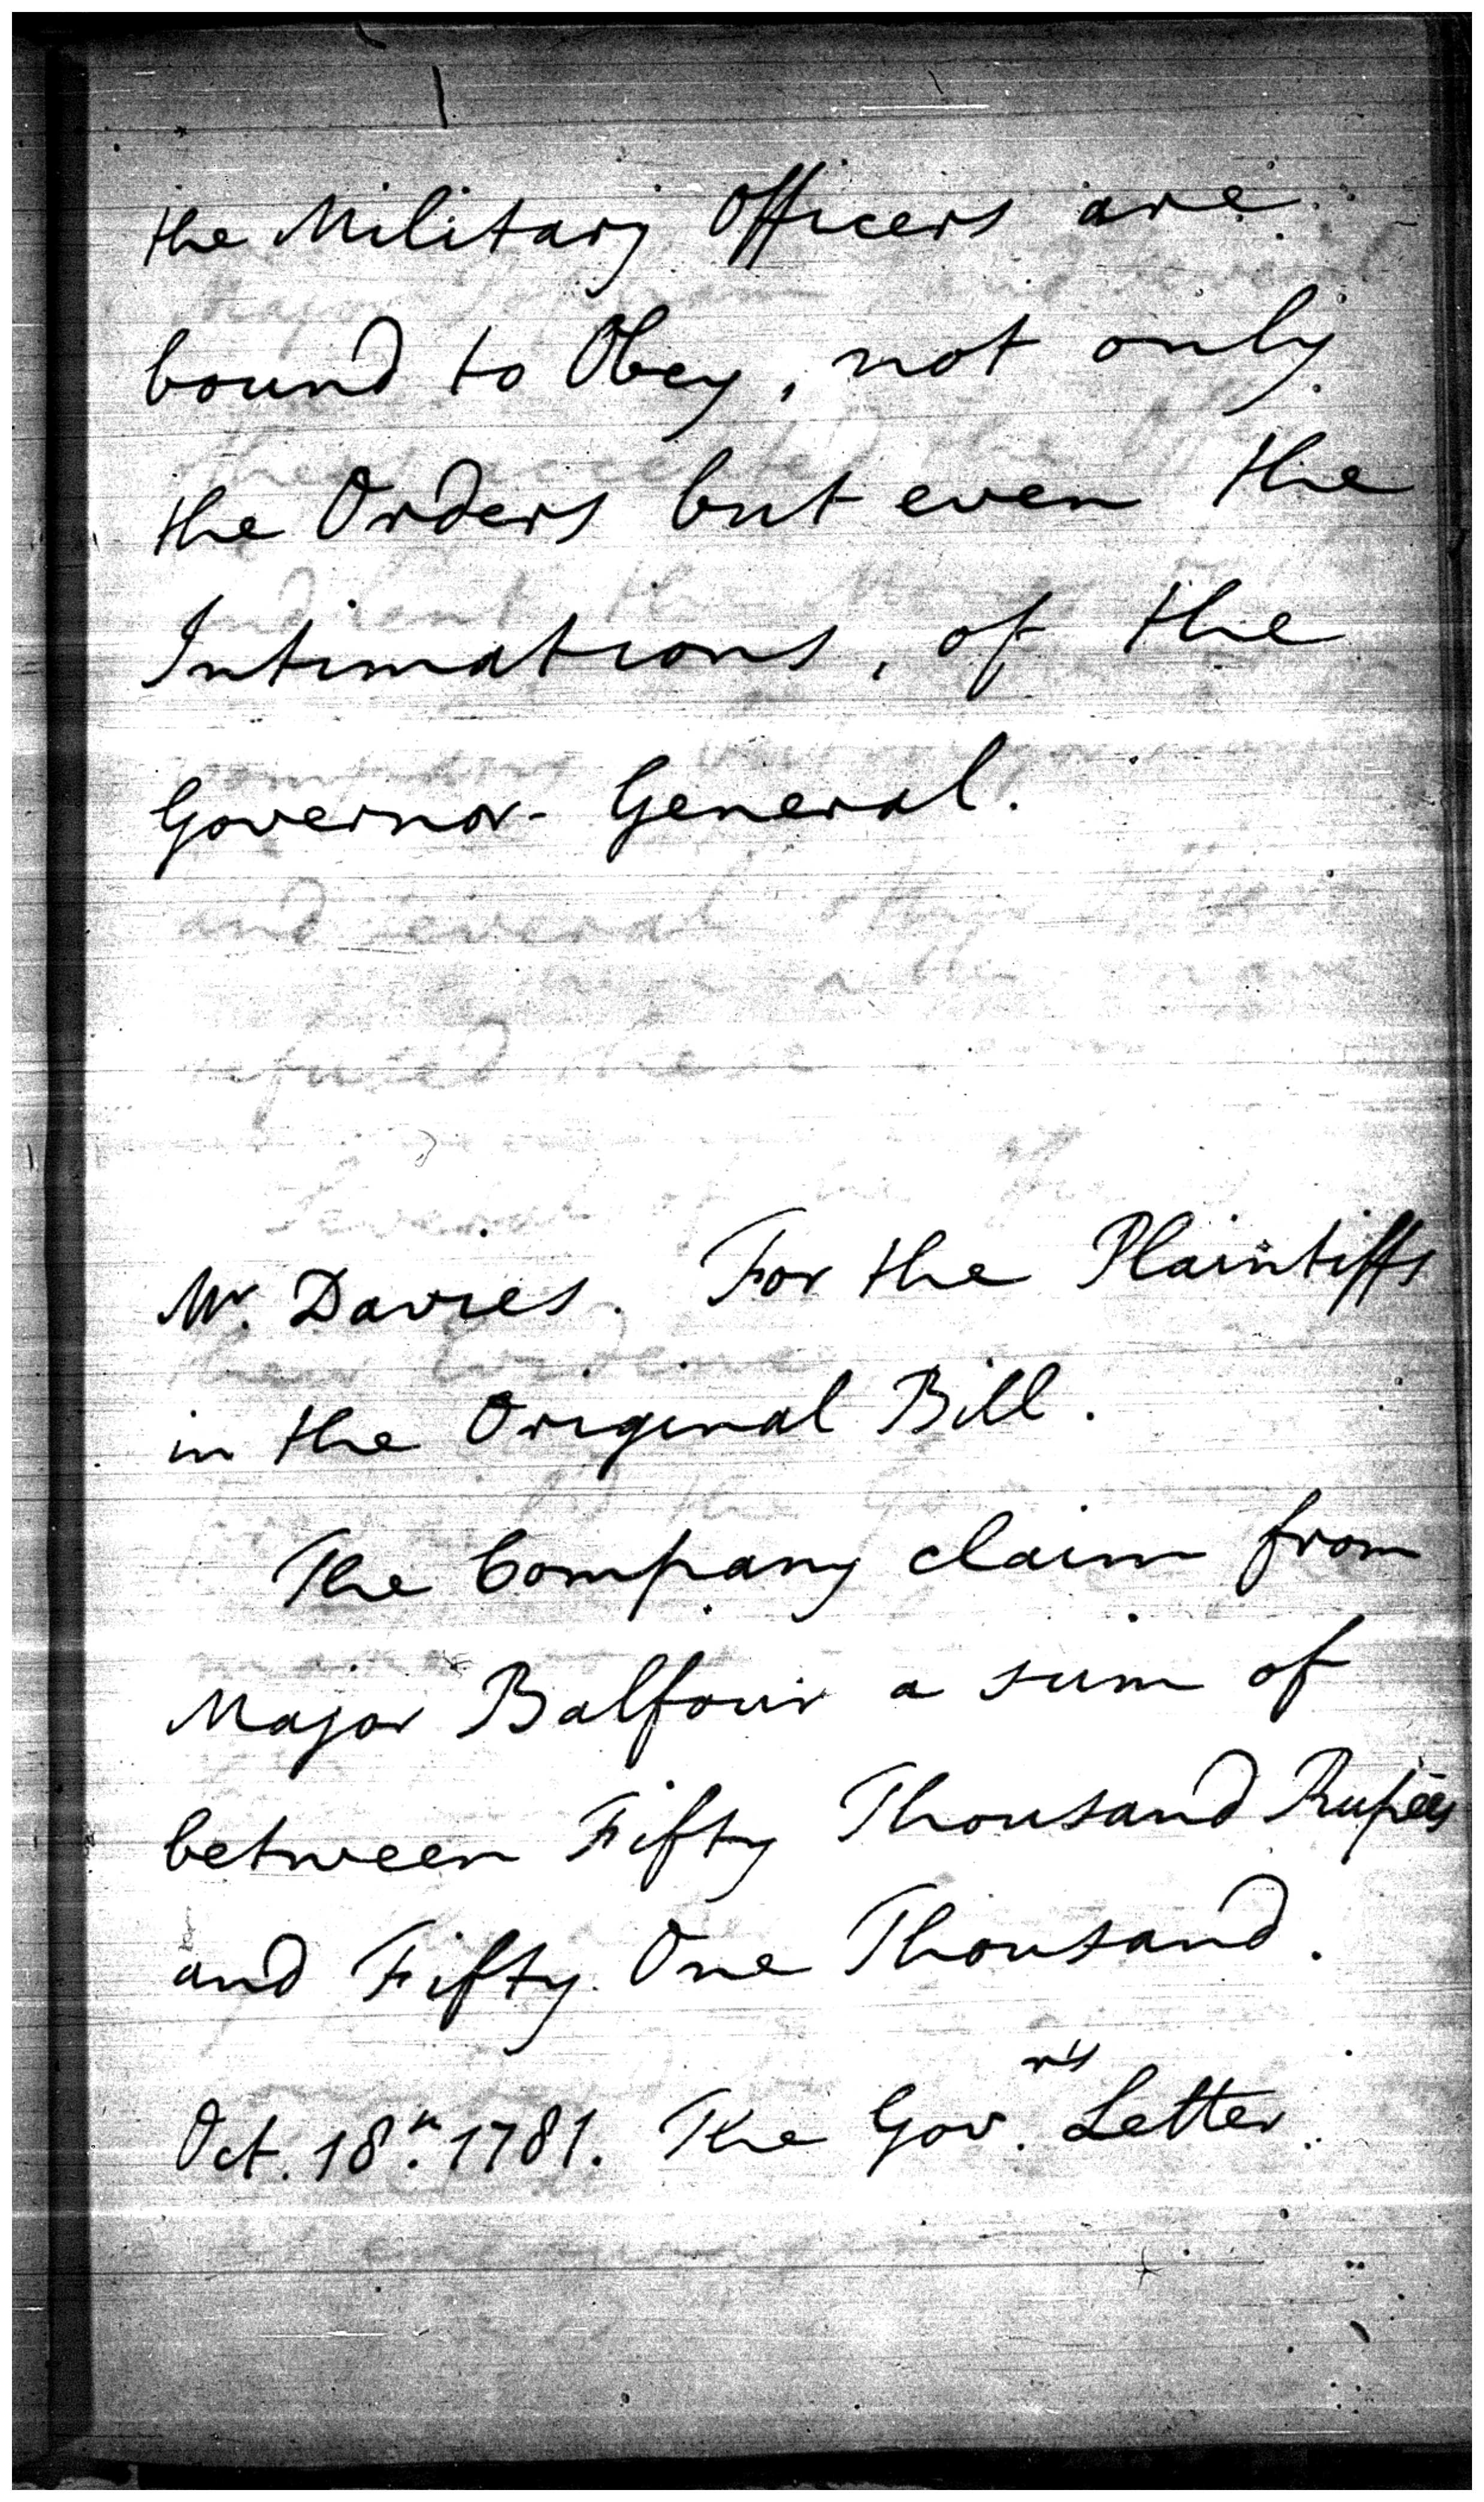 the Military Officers are
bound to Obey, not only
the Orders but even the
Intimations, of the
Governor-General.
Mr. Davies. For the Plaintiffs
in the Original Bill.
The Company claim from
Major Balfour a sum of
between Fifty Thousand Rupees
and Fifty One Thousand.
Oct. 18th. 1781. The Gov.r's Letter